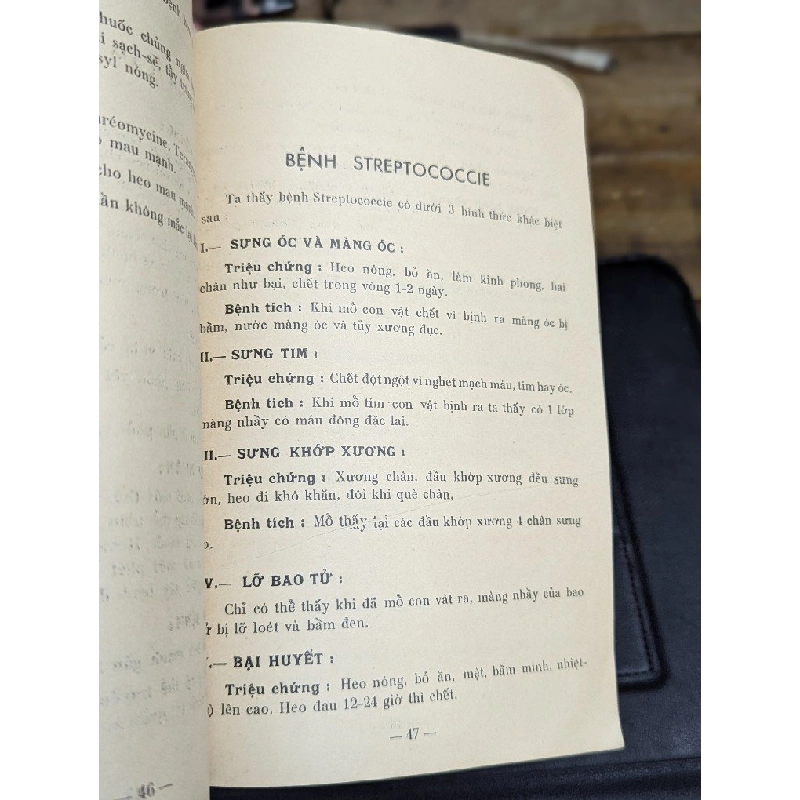 huốc chủng ngừa
i sạch-sẽ, tẩy
syl nóng.
uréomycine.
o mau mạnh.
cho heo mau mạnh
ần không mắc
— 46 —
BỆNH STREPTOCOCCIE
Ta thấy bệnh Streptococcie có dưới 3 hình thức khác biệt
sau :
I.— SƯNG ÓC VÀ MÀNG ÓC :
Triệu chứng : Heo nóng, bỏ ăn, làm kinh phong, hai
chân như bại, chết trong vòng 1-2 ngày.
Bệnh tích : Khi mổ con vật chết vì bịnh ra màng óc bị
bầm, nước màng óc và tủy xương đục.
II.— SƯNG TIM :
Triệu chứng : Chết đột ngột vì nghẹt mạch máu, tim hay óc.
Bệnh tích : Khi mổ tim con vật bịnh ra ta thấy có 1 lớp
màng nhầy có mán đông đặc lại.
II.— SƯNG KHỚP XƯƠNG :
Triệu chứng : Xương chân, đầu khớp xương đều sưng
ớn, heo đi khó khăn, đôi khi què chân.
Bệnh tích : Mổ thấy tại các đầu khớp xương 4 chân sưng
o.
V.— LỠ BAO TỬ :
Chỉ có thể thấy khi đã mổ con vật ra, màng nhầy của bao
ử bị lỡ loét và bầm đen.
.— BẠI HUYẾT :
Triệu chứng : Heo nóng, bỏ ăn, mệt, bầm mình, nhiệt-
ộ lên cao. Heo đau 12-24 giờ thì chết.
— 47 —